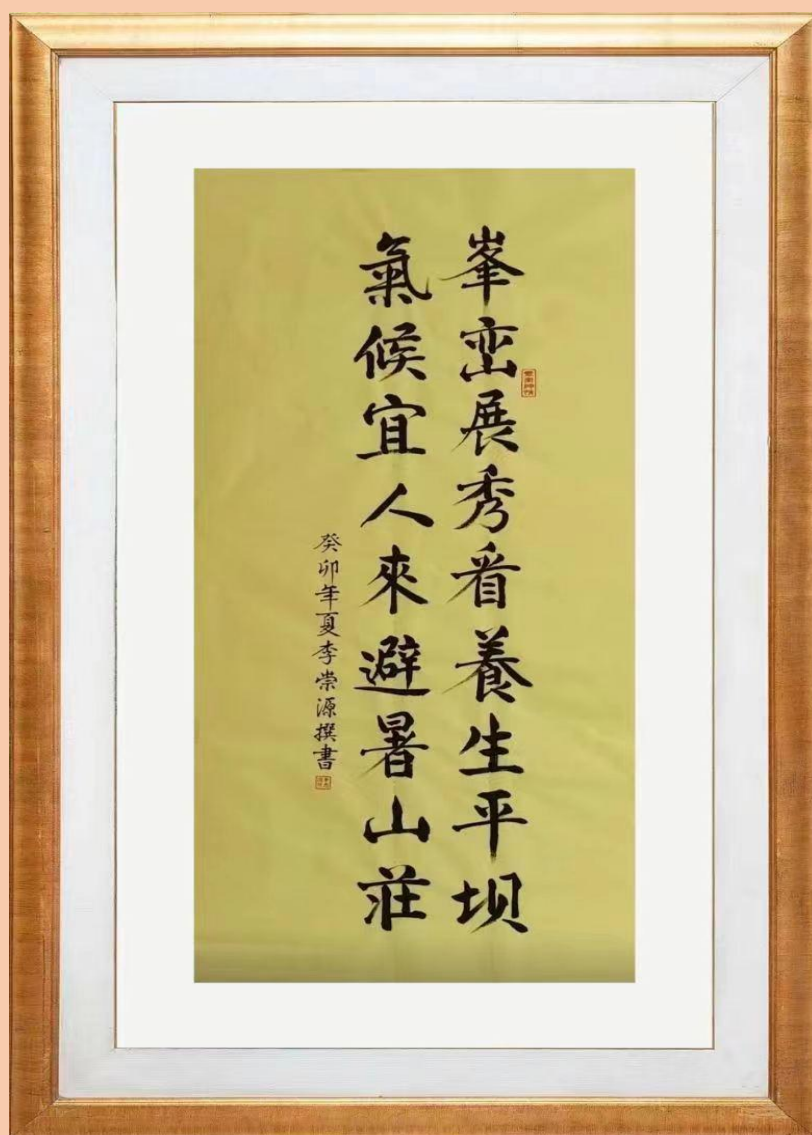 峯峦展秀看養生平坝
氣候宜人來避暑山莊
癸卯年夏李崇源撰書